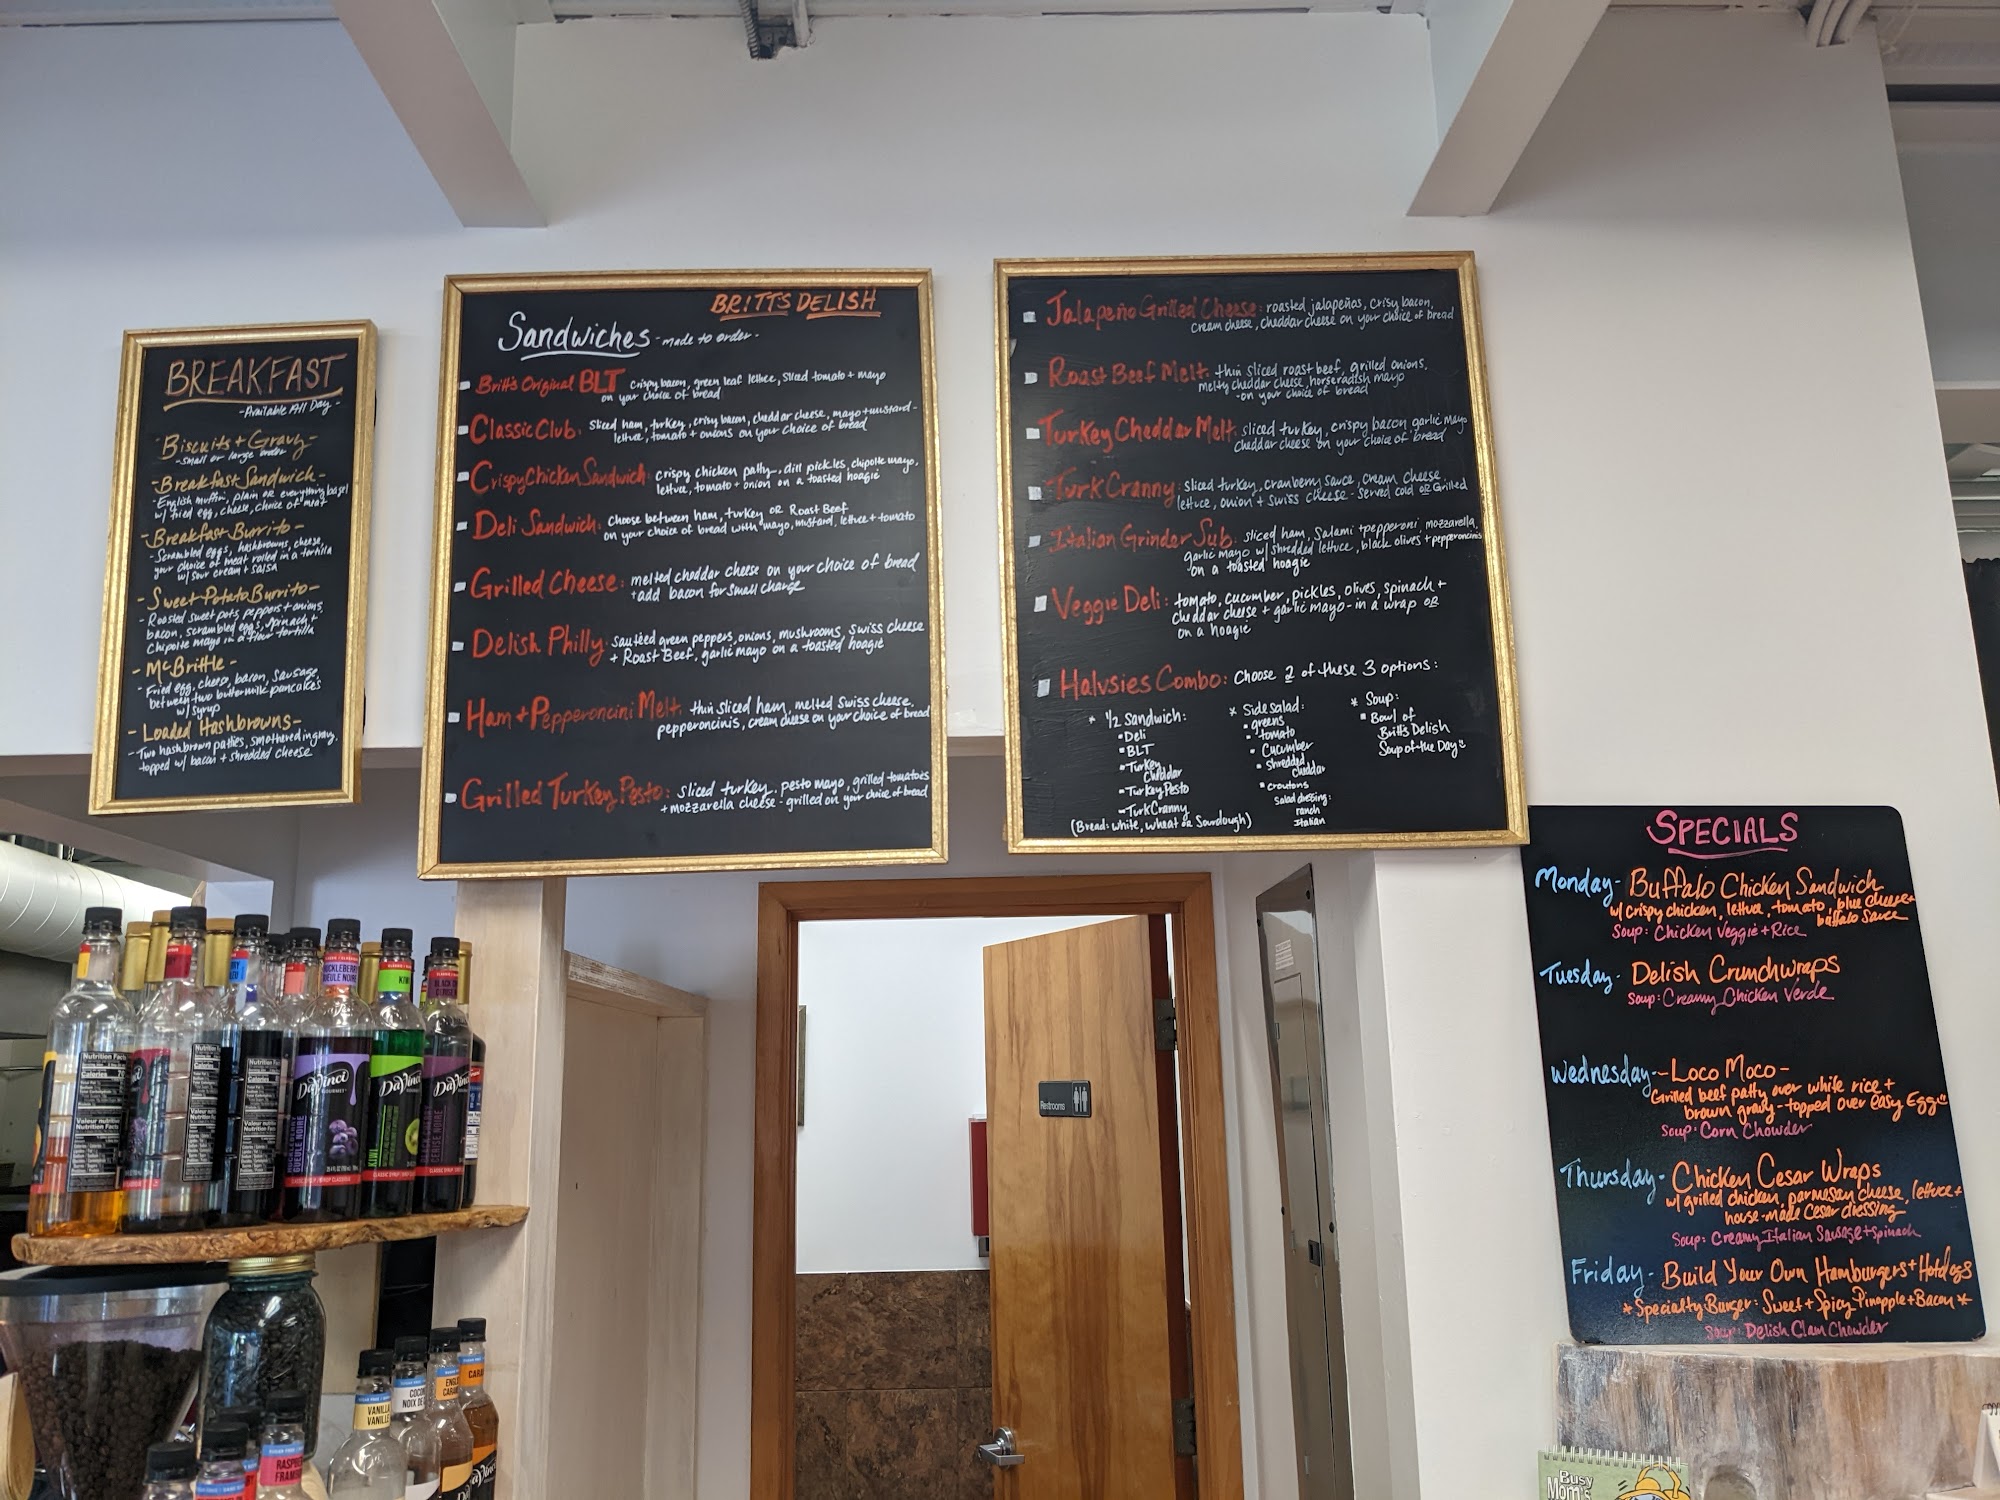 BREAKFAST
-Available All Day-
Biscuits + Gravy-
-small or large order
-Breakfast Sandwich-
-English muffin, plain or everything bagel
w/ fried egg, cheese, choice of meat
-Breakfast Burrito-
-Scrambled eggs, hashbrowns, cheese,
your choice of meat rolled in a tortilla
w/ sour cream + salsa
-Sweet Potato Burrito-
-Roasted sweet pots, peppers + onions,
bacon, scrambled eggs, spinach +
Chipotle mayo in a flour tortilla
-McBrittle-
-Fried egg, cheese, bacon, sausage,
between two buttermilk pancakes
w/ syrup
-Loaded Hashbrowns-
-Two hashbrown patties, smothered in gravy,
topped w/ bacon + shredded cheese
BRITT'S DELISH
Sandwiches -made to order-
Britt's Original BLT crispy bacon, green leaf lettuce, sliced tomato + mayo
on your choice of bread
Classic Club: sliced ham, turkey, crisy bacon, cheddar cheese, mayo + mustard-
lettuce, tomato + onions on your choice of bread
Crispy Chicken Sandwich: crispy chicken patty, dill pickles, chipotle mayo,
lettuce, tomato + onion on a toasted hoagie
Deli Sandwich: choose between ham, turkey or Roast Beef
on your choice of bread with mayo, mustard, lettuce + tomato
Grilled Cheese: melted cheddar cheese on your choice of bread
+add bacon for small charge
Delish Philly: sautéed green peppers, onions, mushrooms, swiss cheese
+ Roast Beef, garlic mayo on a toasted hoagie
Ham + Pepperoncini Melt: thin sliced ham, melted Swiss cheese,
pepperoncinis, cream cheese on your choice of bread
Grilled Turkey Pesto: sliced turkey, pesto mayo, grilled tomatoes
+ mozzarella cheese - grilled on your choice of bread
Jalapeño Grilled Cheese: roasted jalapeñas, crisy bacon,
cream cheese, cheddar cheese on your choice of bread
Roast Beef Melt: thin sliced roast beef, grilled onions,
melty cheddar cheese, horseradish mayo
-on your choice of bread
Turkey Cheddar Melt: sliced turkey, crispy bacon garlic mayo
cheddar cheese on your choice of bread
TurkCranny: sliced turkey, cranberry sauce, cream cheese,
lettuce, onion + swiss cheese - served cold or Grilled
Italian Grinder Sub: sliced ham, salami + pepperoni, mozzarella,
garlic mayo w/ shredded lettuce, black olives + pepperoncinis
on a toasted hoagie
Veggie Deli: tomato, cucumber, pickles, olives, spinach +
cheddar cheese + garlic mayo - in a wrap or
on a hoagie
Halvsies Combo: Choose 2 of these 3 options:
* ½ Sandwich:
• Deli
• BLT
• Turkey
Cheddar
• Turkey Pesto
- TurkCranny
(Bread: white, wheat or Sourdough)
* Side salad:
• greens
• tomato
• Cucumber
• Shredded
cheddar
• croutons
Salad dressing:
ranch
Italian
* Soup:
• Bowl of
Britt's Delish
Soup of the Day
SPECIALS
Monday - Buffalo Chicken Sandwich
w/ crispy chicken, lettuce, tomato, blue cheese +
buffalo sauce
Soup: Chicken Veggie + Rice
Tuesday - Delish Crunchwraps
Soup: Creamy Chicken Verde
Wednesday - - Loco Moco -
Grilled beef patty over white rice +
brown gravy - topped over easy Egg
Soup: Corn Chowder
Thursday - Chicken Cesar Wraps
w/ grilled chicken, parmesan cheese, lettuce +
house-made cesar dressing
Soup: Creamy Italian Sausage + spinach
Friday - Build Your Own Hamburgers + Hotdogs
* Specialty Burger: Sweet + Spicy Pinapple + Bacon *
Soup: Delish Clam Chowder
HUCKLEBERRY
GUEULE NOIRE
KIWI
Nutrition Facts
Calories
DaVinci
GOURMET
HUCKLEBERRY
GUEULE NOIRE
CLASSIC SYRUP / SIROP CLASSIQUE
DaVinci
KIWI
DaVinci
CERISE NOIRE
Restrooms
VANILLA
VANILLE
COCON
NOIX DE
RASPBE
FRAMBO
Busy
Mom's